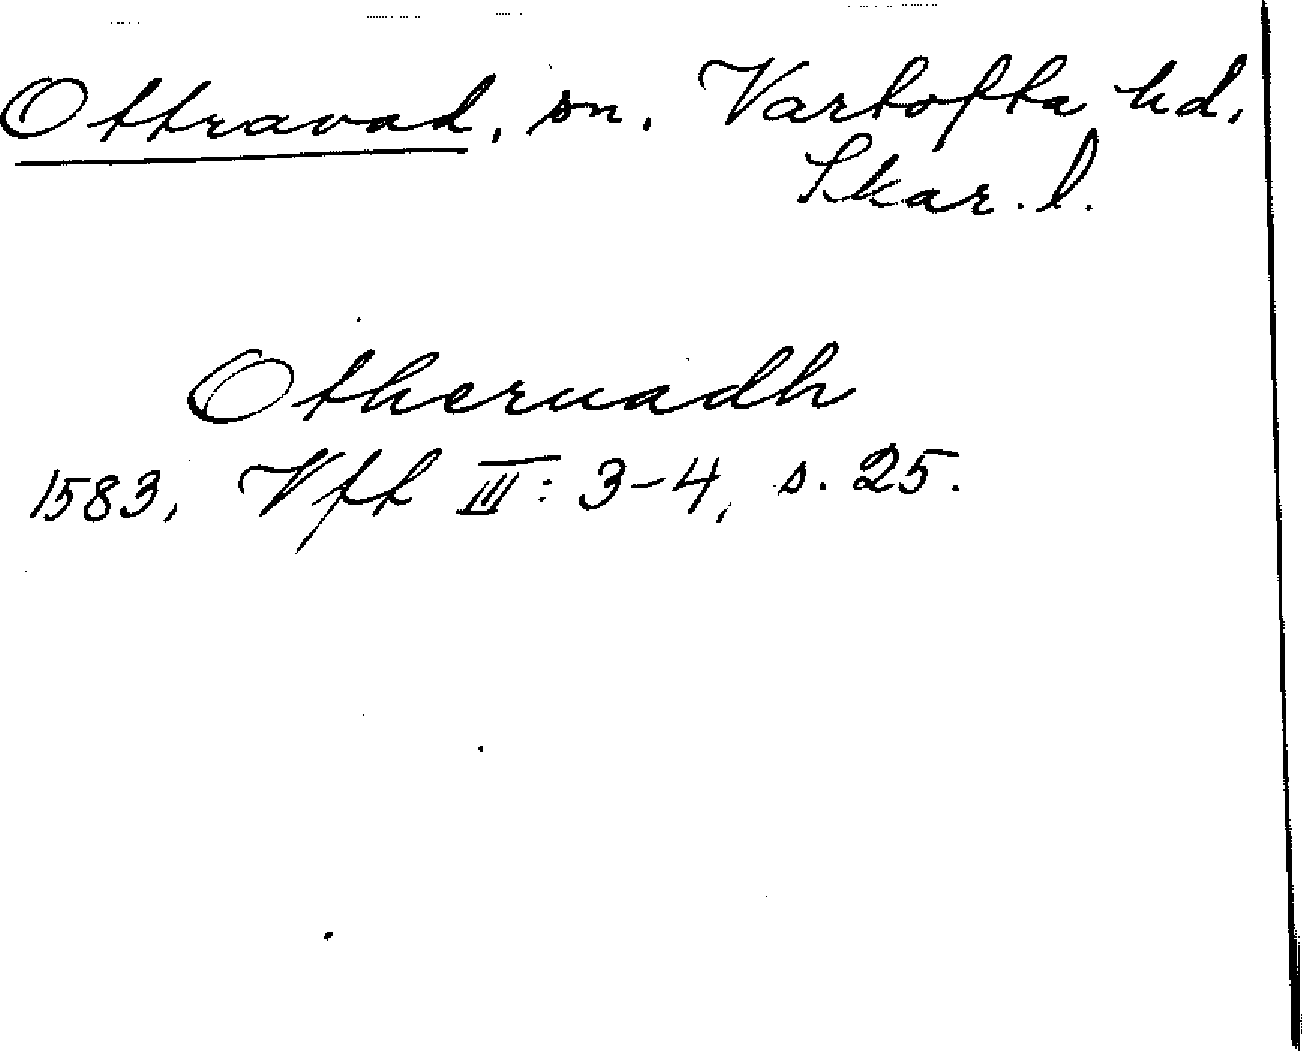 Ottravad, sn. Vartofta hd,
Skar. l.
Otheruadh
1583, Vft III: 3-4, s. 25.